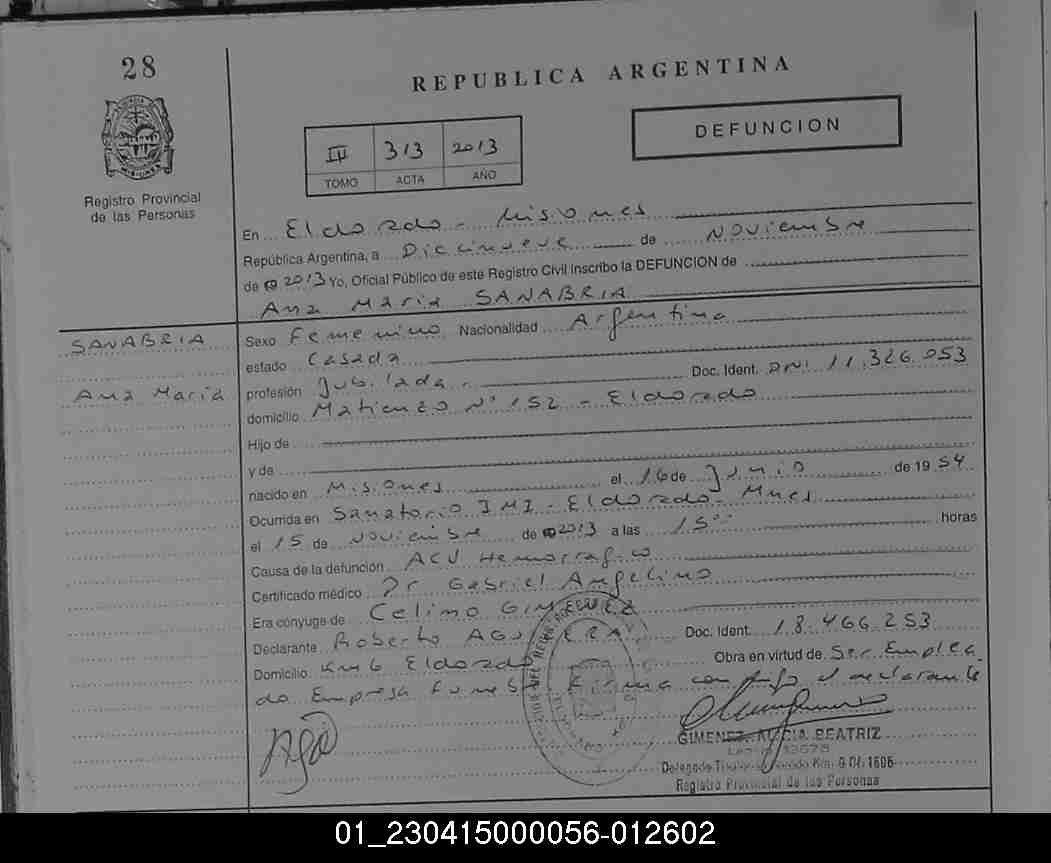 28
REPUBLICA ARGENTINA
DEFUNCION
III 313 2013
TOMO ACTA AÑO
Registro Provincial
de las Personas
En Eldorado - Misiones
República Argentina, a Diecinueve de Noviembre
de 2013 Yo, Oficial Público de este Registro Civil inscribo la DEFUNCION de
Ana Maria SANABRIA
SANABRIA
Ana Maria
Sexo Femenino Nacionalidad Argentina
estado Casada
profesión Jubilada. Doc. Ident. DNI 11.326.053
domicilio Matienzo N° 152 - Eldorado
Hijo de
y de
nacido en Misiones el 16 de Junio de 1954
Ocurrida en Sanatorio IMI - Eldorado - Mnes
el 15 de Noviembre de 2013 a las 15 horas
Causa de la defunción ACV Hemorragico
Certificado médico Dr Gabriel Angelino
Era cónyuge de Celimo GIMENEZ
Declarante Roberto AGUILERA Doc. Ident. 18.466.253
Domicilio Km 6 Eldorado Obra en virtud de Ser Emplea
do Empresa Funebre Firma conmigo el declarante
GIMENEZ, ALICIA BEATRIZ
Registro Provincial de las Personas
01_230415000056-012602